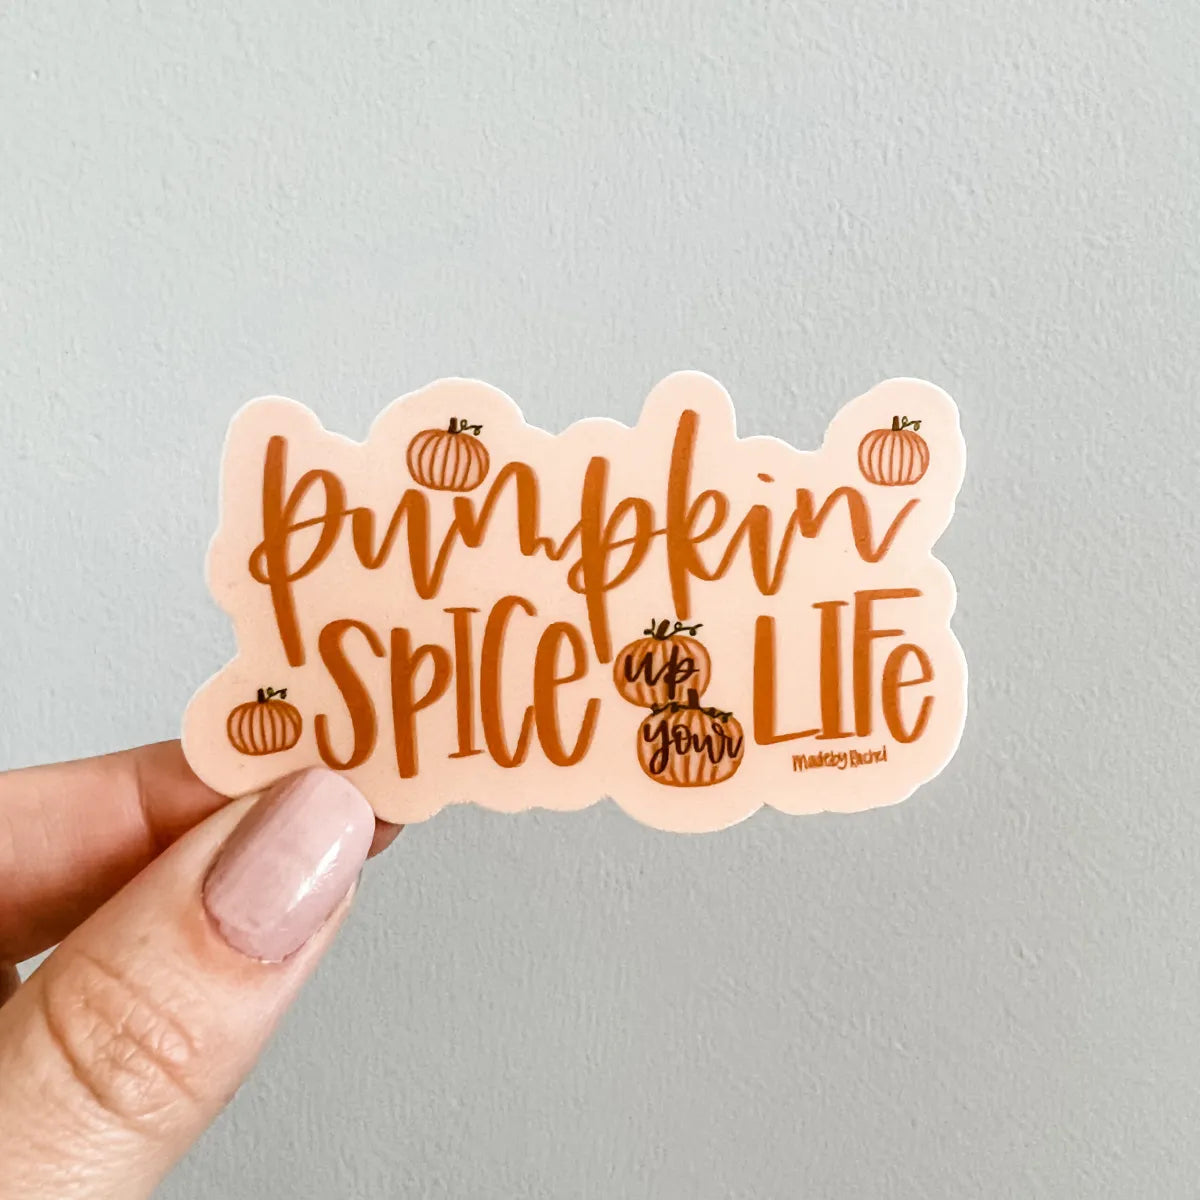 pumpkin
SPICE up your LIFE
Madeby Rachel